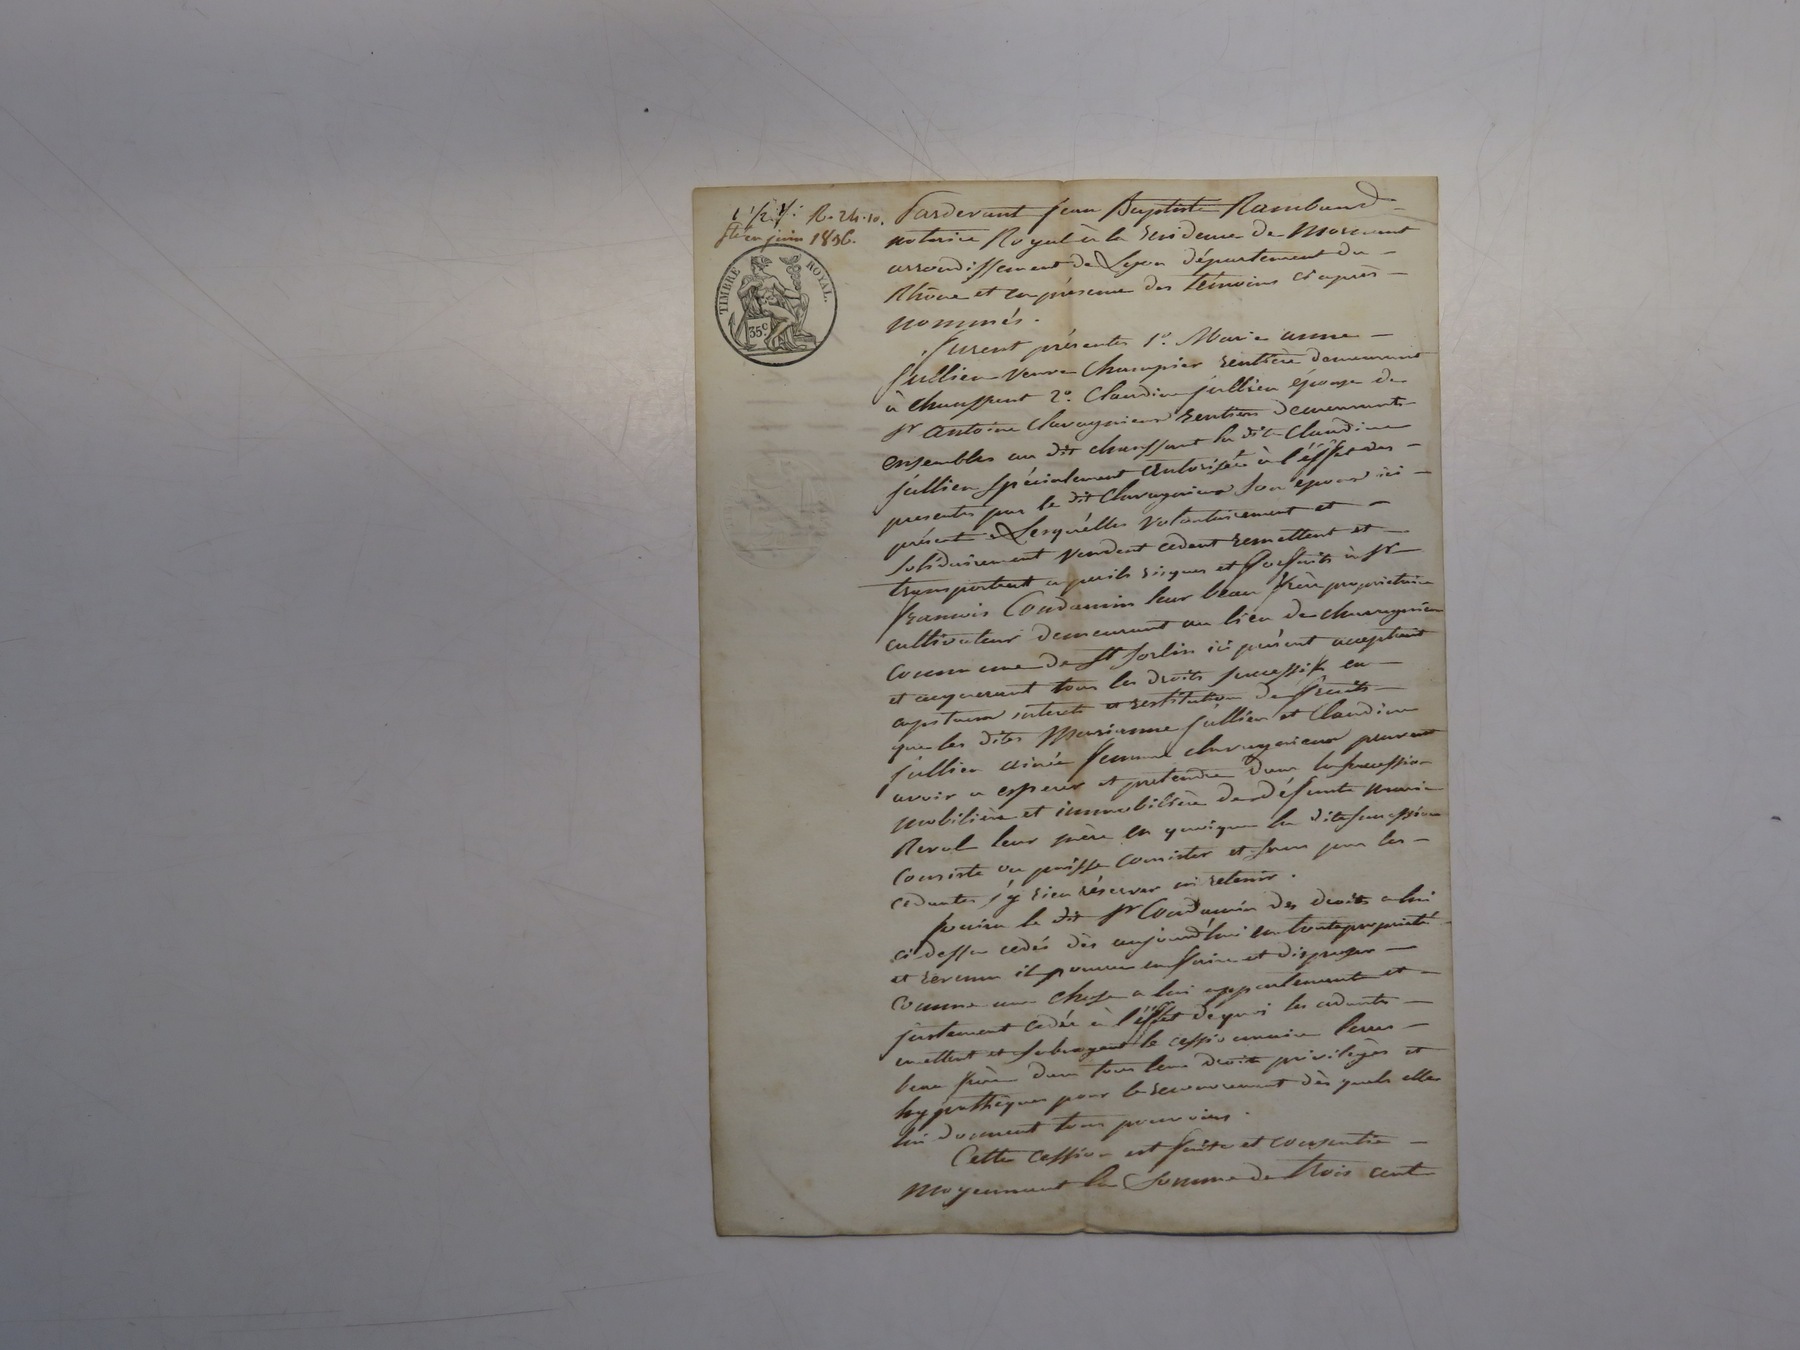 R. 24. 10.
juin 1836.
TIMBRE ROYAL.
35 c
Pardevant jean Baptiste Rambaud
notaire Royal à la residence de Mornant
arrondissement de Lyon département du
Rhône et en présence des temoins ci après
nommés.
furent présentes 1°. Marie anne
jullien veuve Champier rentière demeurant
à chaussant 2°. Claudine jullien épouse de
Sr antoine Chavagnieux rentiers demeurants
ensembles au dit chaussant la dite Claudine
jullien spécialement autorisée à l'éffet des
presentes par le dit Chavagnieux son epoux ici
présent. Lesquelles volontairement et
solidairement vendent cedent remettent et
transportent a perils risques et forfaits à Sr
francois Condamin leur beau frère propriétaire
cultivateur demeurant au lieu de chavagnieux
commune de St Sorlin ici présent acceptant
et acquerant tous les droits successifs en
capitaux interets et restitution de fruits
que les dites Marianne jullien et Claudine
jullien ainée femme chavagnieux peuvent
avoir a esperer et pretendre dans la succession
mobilière et immobilière de défunte marie
Revol leur mère en quoique la dite succession
consiste ou puisse consister et sans par les
cedantes s'y rien réserver ni retenir.
jouira le dit Sr Condamin des droits a lui
ci dessu cedés dès aujourd'hui en toute propriété
et revenu il pourra en faire et disposer
comme une chose a lui appartenant et
justement cedée à l'éffet de quoi les cedantes
mettent et subrogent le cessionnaire leur
beau frère dans tous leurs droits privilèges et
hypothèques pour le recouvrement dès quels elles
lui donnent tous pouvoirs.
Cette cession est faite et consentie
moyennant la somme de trois cent